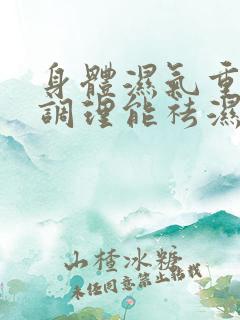 身體濕氣重
調理能祛濕
山楂冰糖
未经同意禁止转载